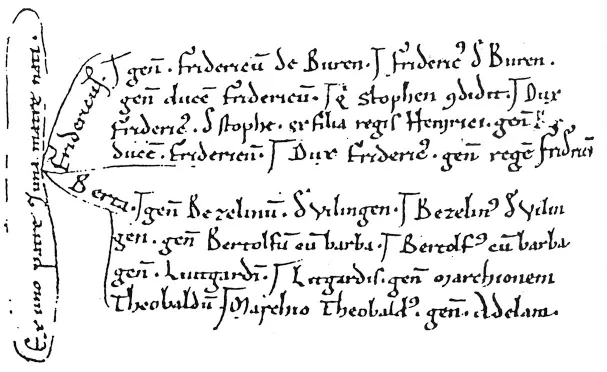 Ex uno patre & una matre nati
Fridericus.
gen̄. fridericū de Buren. frideric⁹ d̄ Buren.
gen̄. ducē fridericū. q̄ Stophen ꝯdidit. Dux
frideric⁹. d̄ stophe. ex filia regis Heinrici. gen̄.
ducē. fridericū. Dux frideric⁹. gen̄ regē fridericū
Berta.
gen̄ Bezelinū. d̄ vilingen. Bezelin⁹ d̄ vilin
gen. gen̄ Bertolfū cū barba. Bertolf⁹ cū barba
gen̄. Liutgardī. Litgardis. gen̄ marchionem
Theobaldū. Marchio Theobald⁹. gen̄. Adelam.